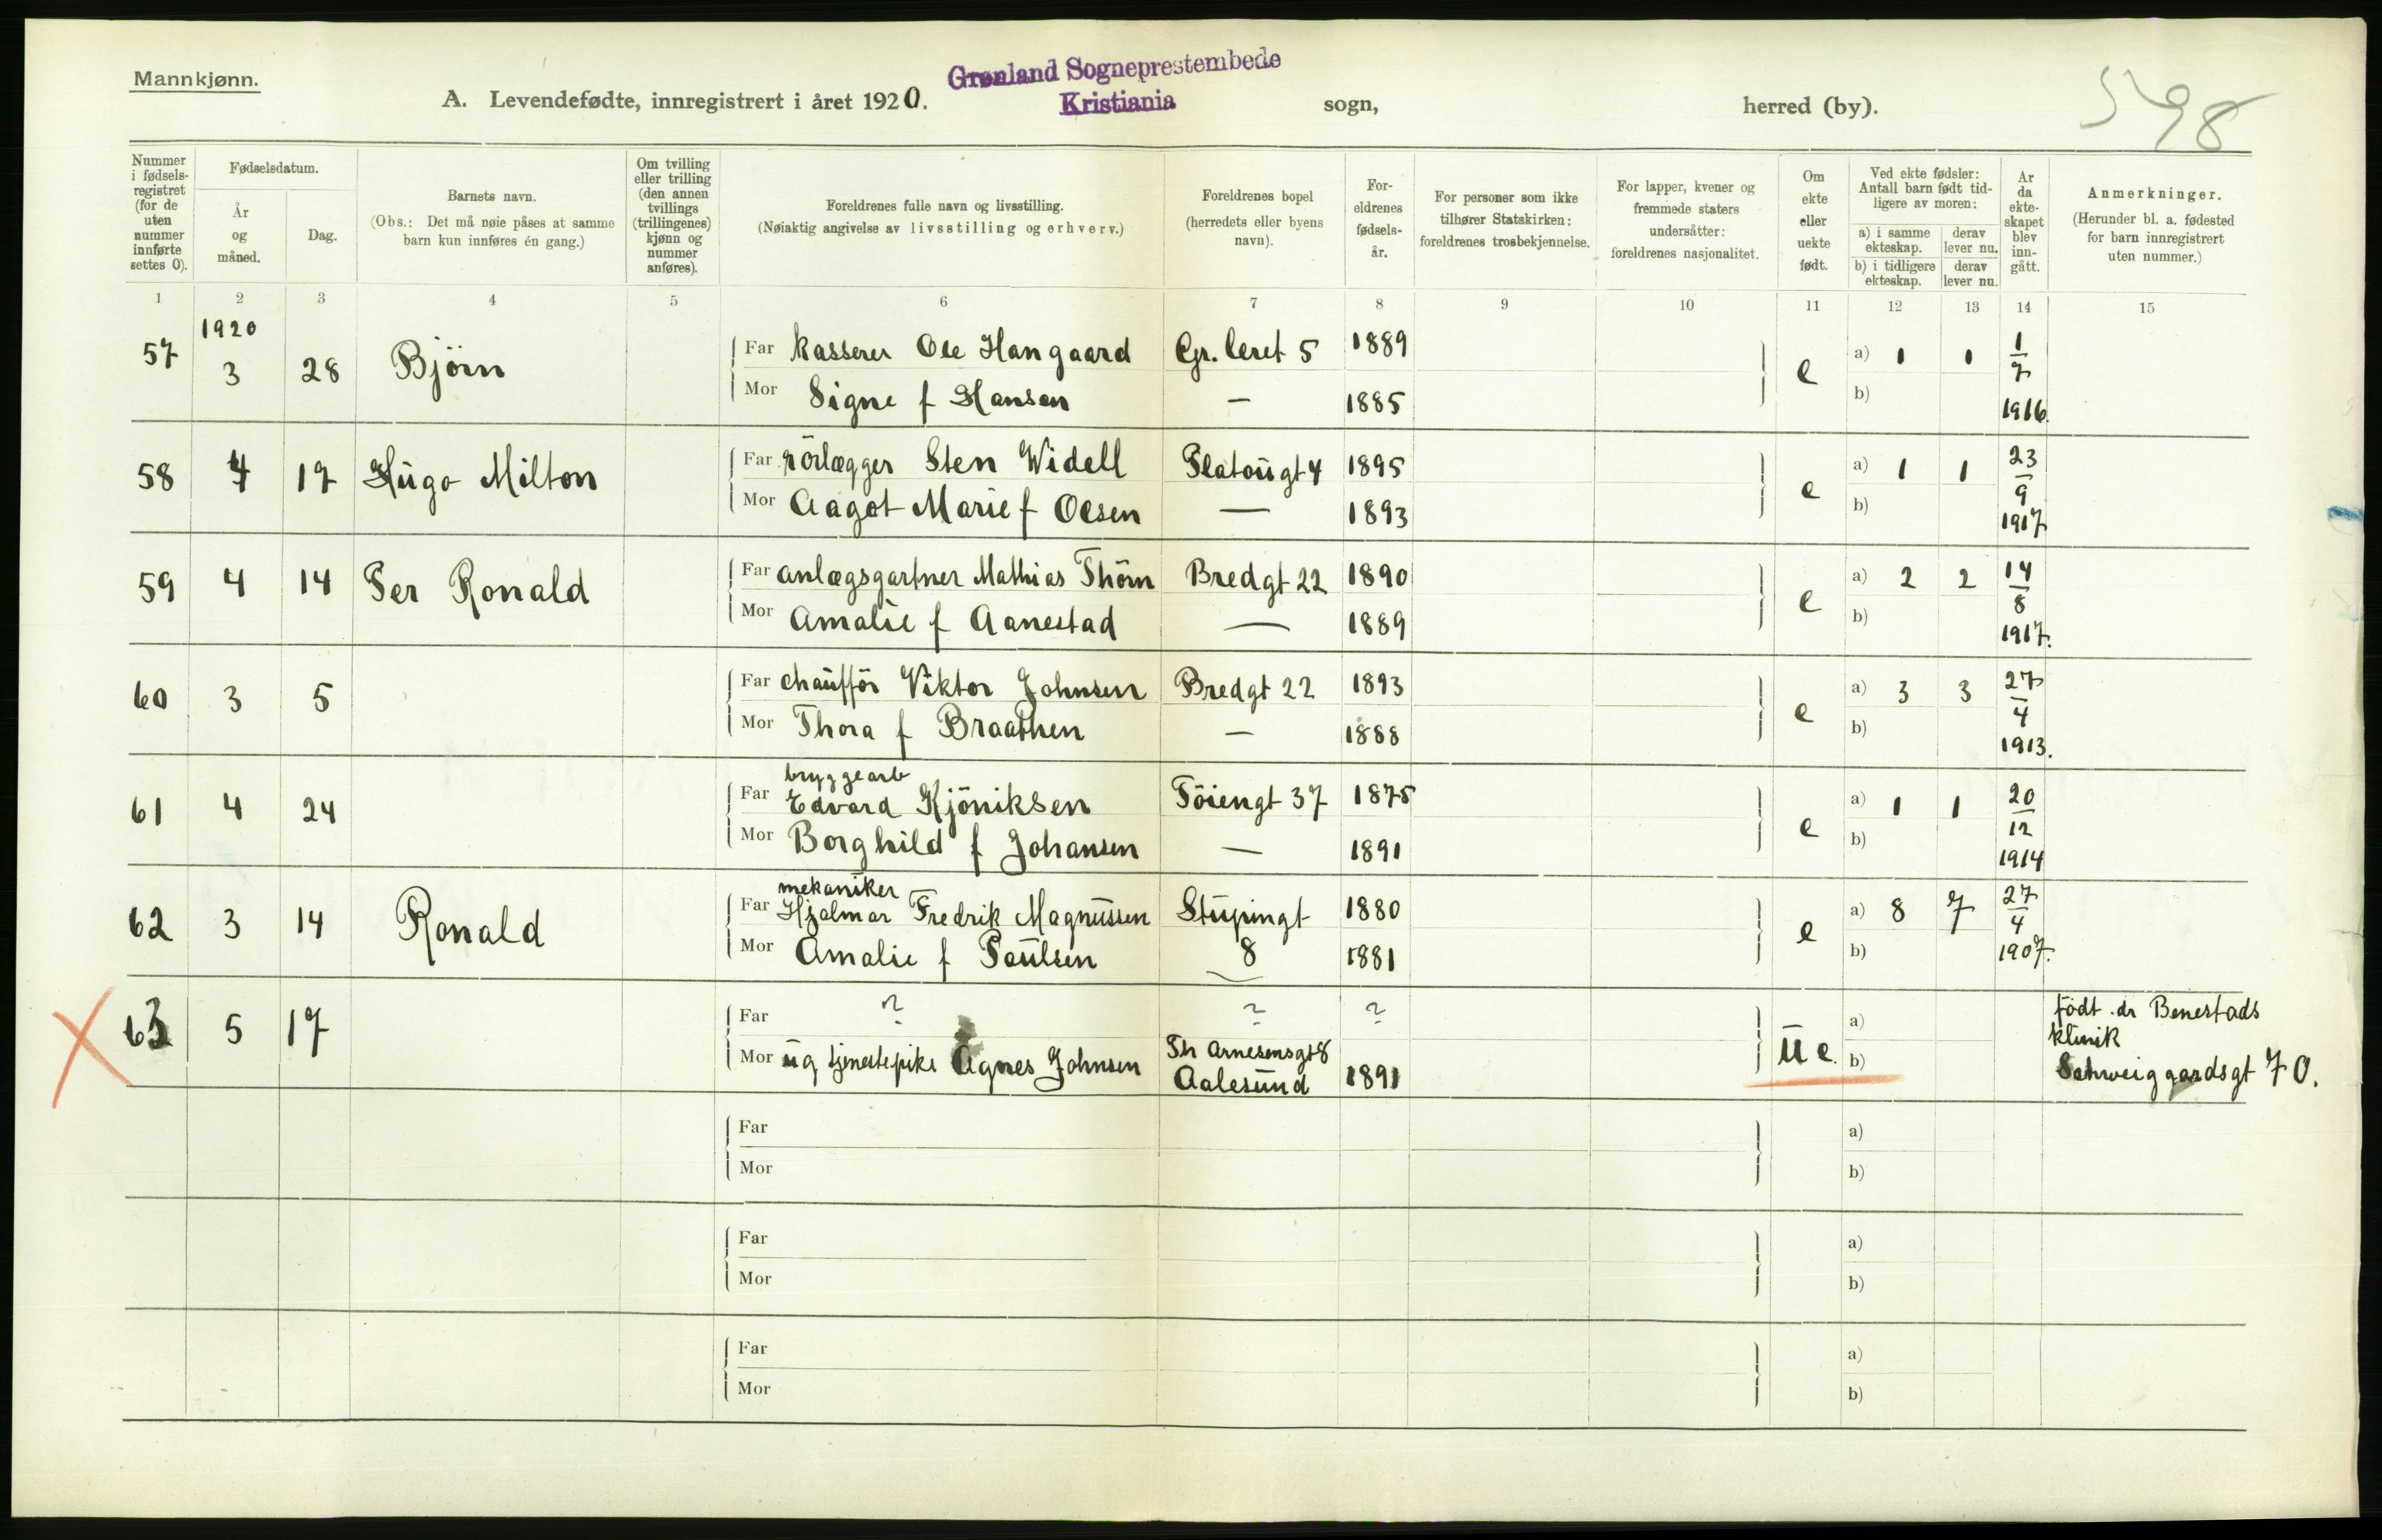 Mannkjønn.
Grønland Sogneprestembede
Kristiania
A. Levendefødte, innregistrert i året 1920. sogn, herred (by).
598
Nummer i fødsels-registret (for de uten nummer innførte settes 0).
Fødselsdatum.
År og måned.
Dag.
Barnets navn.
(Obs.: Det må nøie påses at samme barn kun innføres én gang.)
Om tvilling eller trilling (den annen tvillings (trillingenes) kjønn og nummer anføres).
Foreldrenes fulle navn og livsstilling.
(Nøiaktig angivelse av livsstilling og erhverv.)
Foreldrenes bopel
(herredets eller byens navn).
For-eldrenes fødsels-år.
For personer som ikke tilhører Statskirken: foreldrenes trosbekjennelse.
For lapper, kvener og fremmede staters undersåtter: foreldrenes nasjonalitet.
Om ekte eller uekte født.
Ved ekte fødsler: Antall barn født tid-ligere av moren:
a) i samme ekteskap.
derav lever nu.
b) i tidligere ekteskap.
derav lever nu.
År da ekte-skapet blev inn-gått.
Anmerkninger.
(Herunder bl. a. fødested for barn innregistrert uten nummer.)
1 2 3 4 5 6 7 8 9 10 11 12 13 14 15
1920
57 3 28 Björn Far kasserer Ole Hangaard Gr. leret 5 1889 e a) 1 1 1/7 1916.
Mor Signe f Hansen — 1885 b)
58 4 17 Hugo Milton Far rörlægger Sten Widell Platougt 4 1895 e a) 1 1 23/9 1917
Mor Aagot Marie f Olsen — 1893 b)
59 4 14 Per Ronald Far anlægsgartner Mathias Thörn Bredgt 22 1890 e a) 2 2 14/8 1917.
Mor Amalie f Aanestad — 1889 b)
60 3 5 Far chaufför Viktor Johnsen Bredgt 22 1893 e a) 3 3 27/4 1913.
Mor Thora f Braathen — 1888 b)
bryggearb
61 4 24 Far Edvard Kjöniksen Töiengt 37 1875 e a) 1 1 20/12 1914
Mor Borghild f Johansen — 1891 b)
mekaniker
62 3 14 Ronald Far Hjalmar Fredrik Magnussen Stupingt 1880 e a) 8 7 27/4 1907.
Mor Amalie f Paulsen 8 1881 b)
63 5 17 Far ? ? ? a) födt dr Benestads
klinik
Mor ug tjenestepike Agnes Johnsen Th Arnesensgt 8 Aalesund 1891 U e. b) Schweiggardsgt 70.
Far a)
Mor b)
Far a)
Mor b)
Far a)
Mor b)